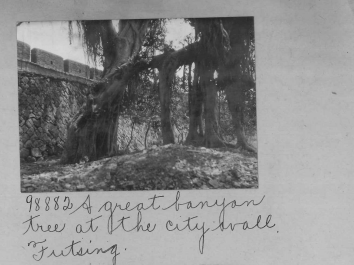 98882 A great banyan
tree at the city wall,
Futsing.